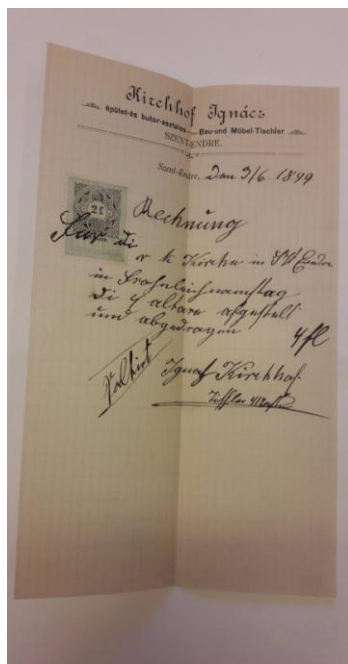 Kirchhof Ignácz
épület-és butor-asztalos Bau-und Möbel-Tischler
SZENT-ENDRE.
Szent-Endre, den 3/6 1899
Rechnung
Für di
r k Kirche in St Endre
in Frohnleichnamstag
di 4 altare afgestell
und abgedragen 4 fl
Ignatz Kirchhof